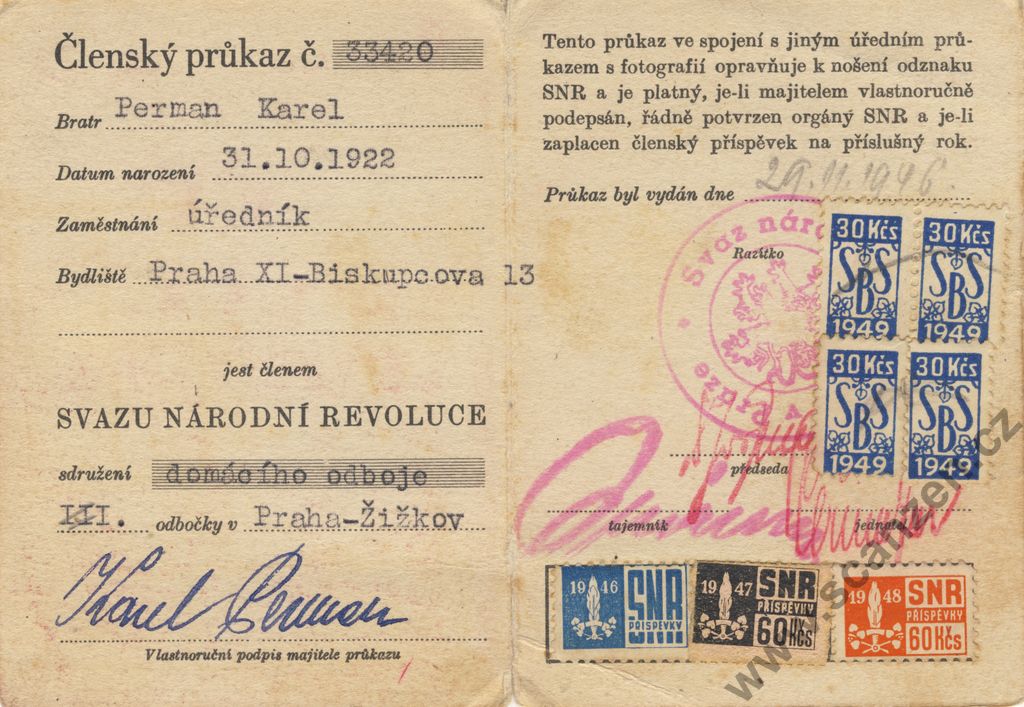 Členský průkaz č. 33420
Bratr Perman Karel
Datum narození 31.10.1922
Zaměstnání úředník
Bydliště Praha XI-Biskupcova 13
jest členem
SVAZU NÁRODNÍ REVOLUCE
sdružení domácího odboje
III. odbočky v Praha-Žižkov
Karel Perman
Vlastnoruční podpis majitele průkazu
Tento průkaz ve spojení s jiným úředním prů-
kazem s fotografií opravňuje k nošení odznaku
SNR a je platný, je-li majitelem vlastnoručně
podepsán, řádně potvrzen orgány SNR a je-li
zaplacen členský příspěvek na příslušný rok.
Průkaz byl vydán dne 29.11.1946.
Svaz náro
Praze
Razítko
30 Kčs 30 Kčs
SBS SBS
1949 1949
30 Kčs 30 Kčs
SBS SBS
1949 1949
předseda
tajemník jednatel
1946 SNR PŘÍSPĚVKY
1947 SNR PŘÍSPĚVKY 60 Kčs
1948 SNR PŘÍSPĚVKY 60 Kčs
www.scanzen.cz